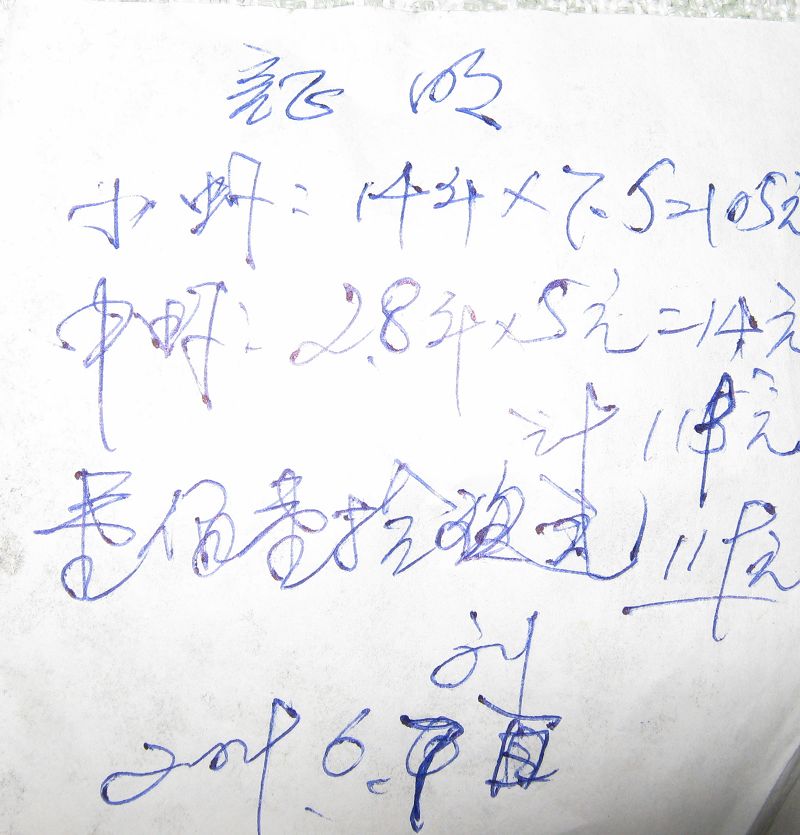 証明
小虾: 14斤×7.5=105元
中虾: 2.8斤×5元=14元
计 119元
壹佰壹拾玖元 119元
刘
2009.6.